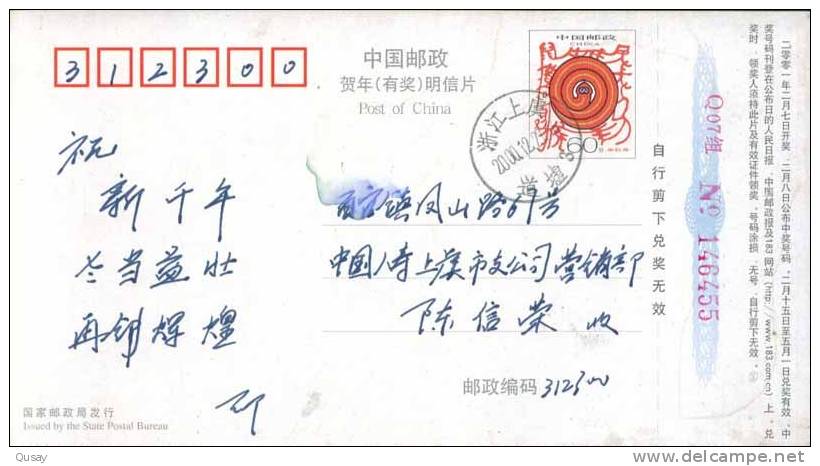 312300
中国邮政
贺年(有奖)明信片
Post of China
中国邮政
CHINA
60分
浙江上虞
2000.12.
祝
新千年
老当益壮
再创辉煌
百官镇凤山路69号
中国人寿上虞市支公司营销部
陈信荣 收
邮政编码 312300
国家邮政局发行
Issued by the State Postal Bureau
自行剪下兑奖无效
Q07组 No: 146455
二零零一年二月七日开奖,二月八日公布中奖号码,二月十五日至五月一日兑奖有效,中
奖号码刊登在公布日的人民日报、中国邮政报及183网站(http://www.183.com.cn)上,兑
奖时,领奖人须持此片及有效证件领奖,号码涂损、无号、自行剪下无效。
Qusay
www.delcampe.net